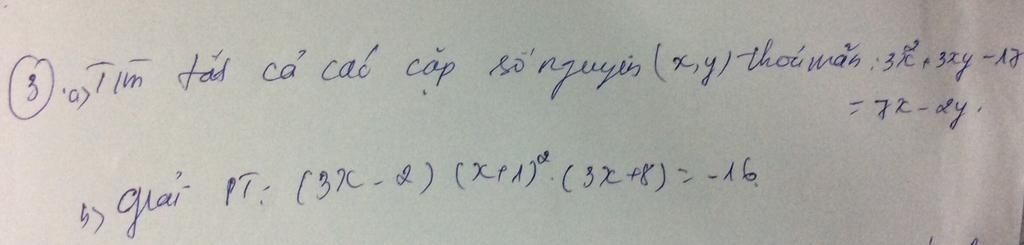 3 a) Tìm tất cả các cặp số nguyên (x,y) thoả mãn: 3x² + 3xy - 17
= 7x - 2y.
b) Giải PT: (3x - 2) (x+1)². (3x+8) = -16.